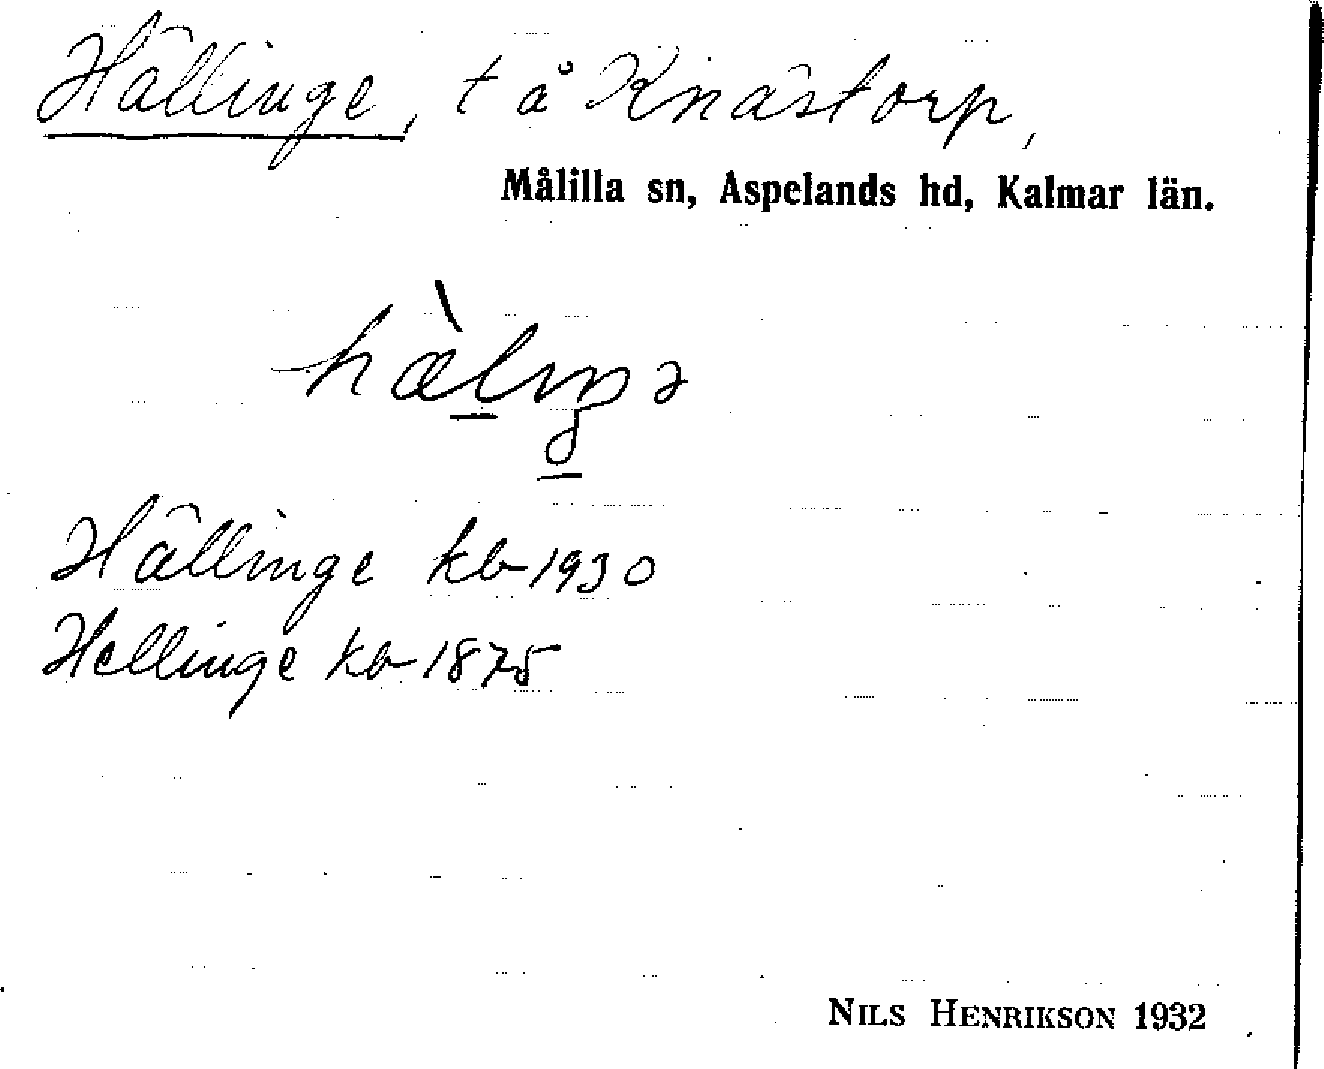 Hällinge, t å Knästorp,
Målilla sn, Aspelands hd, Kalmar län.
Hällinge kb 1930
Hellinge kb 1875
NILS HENRIKSON 1932